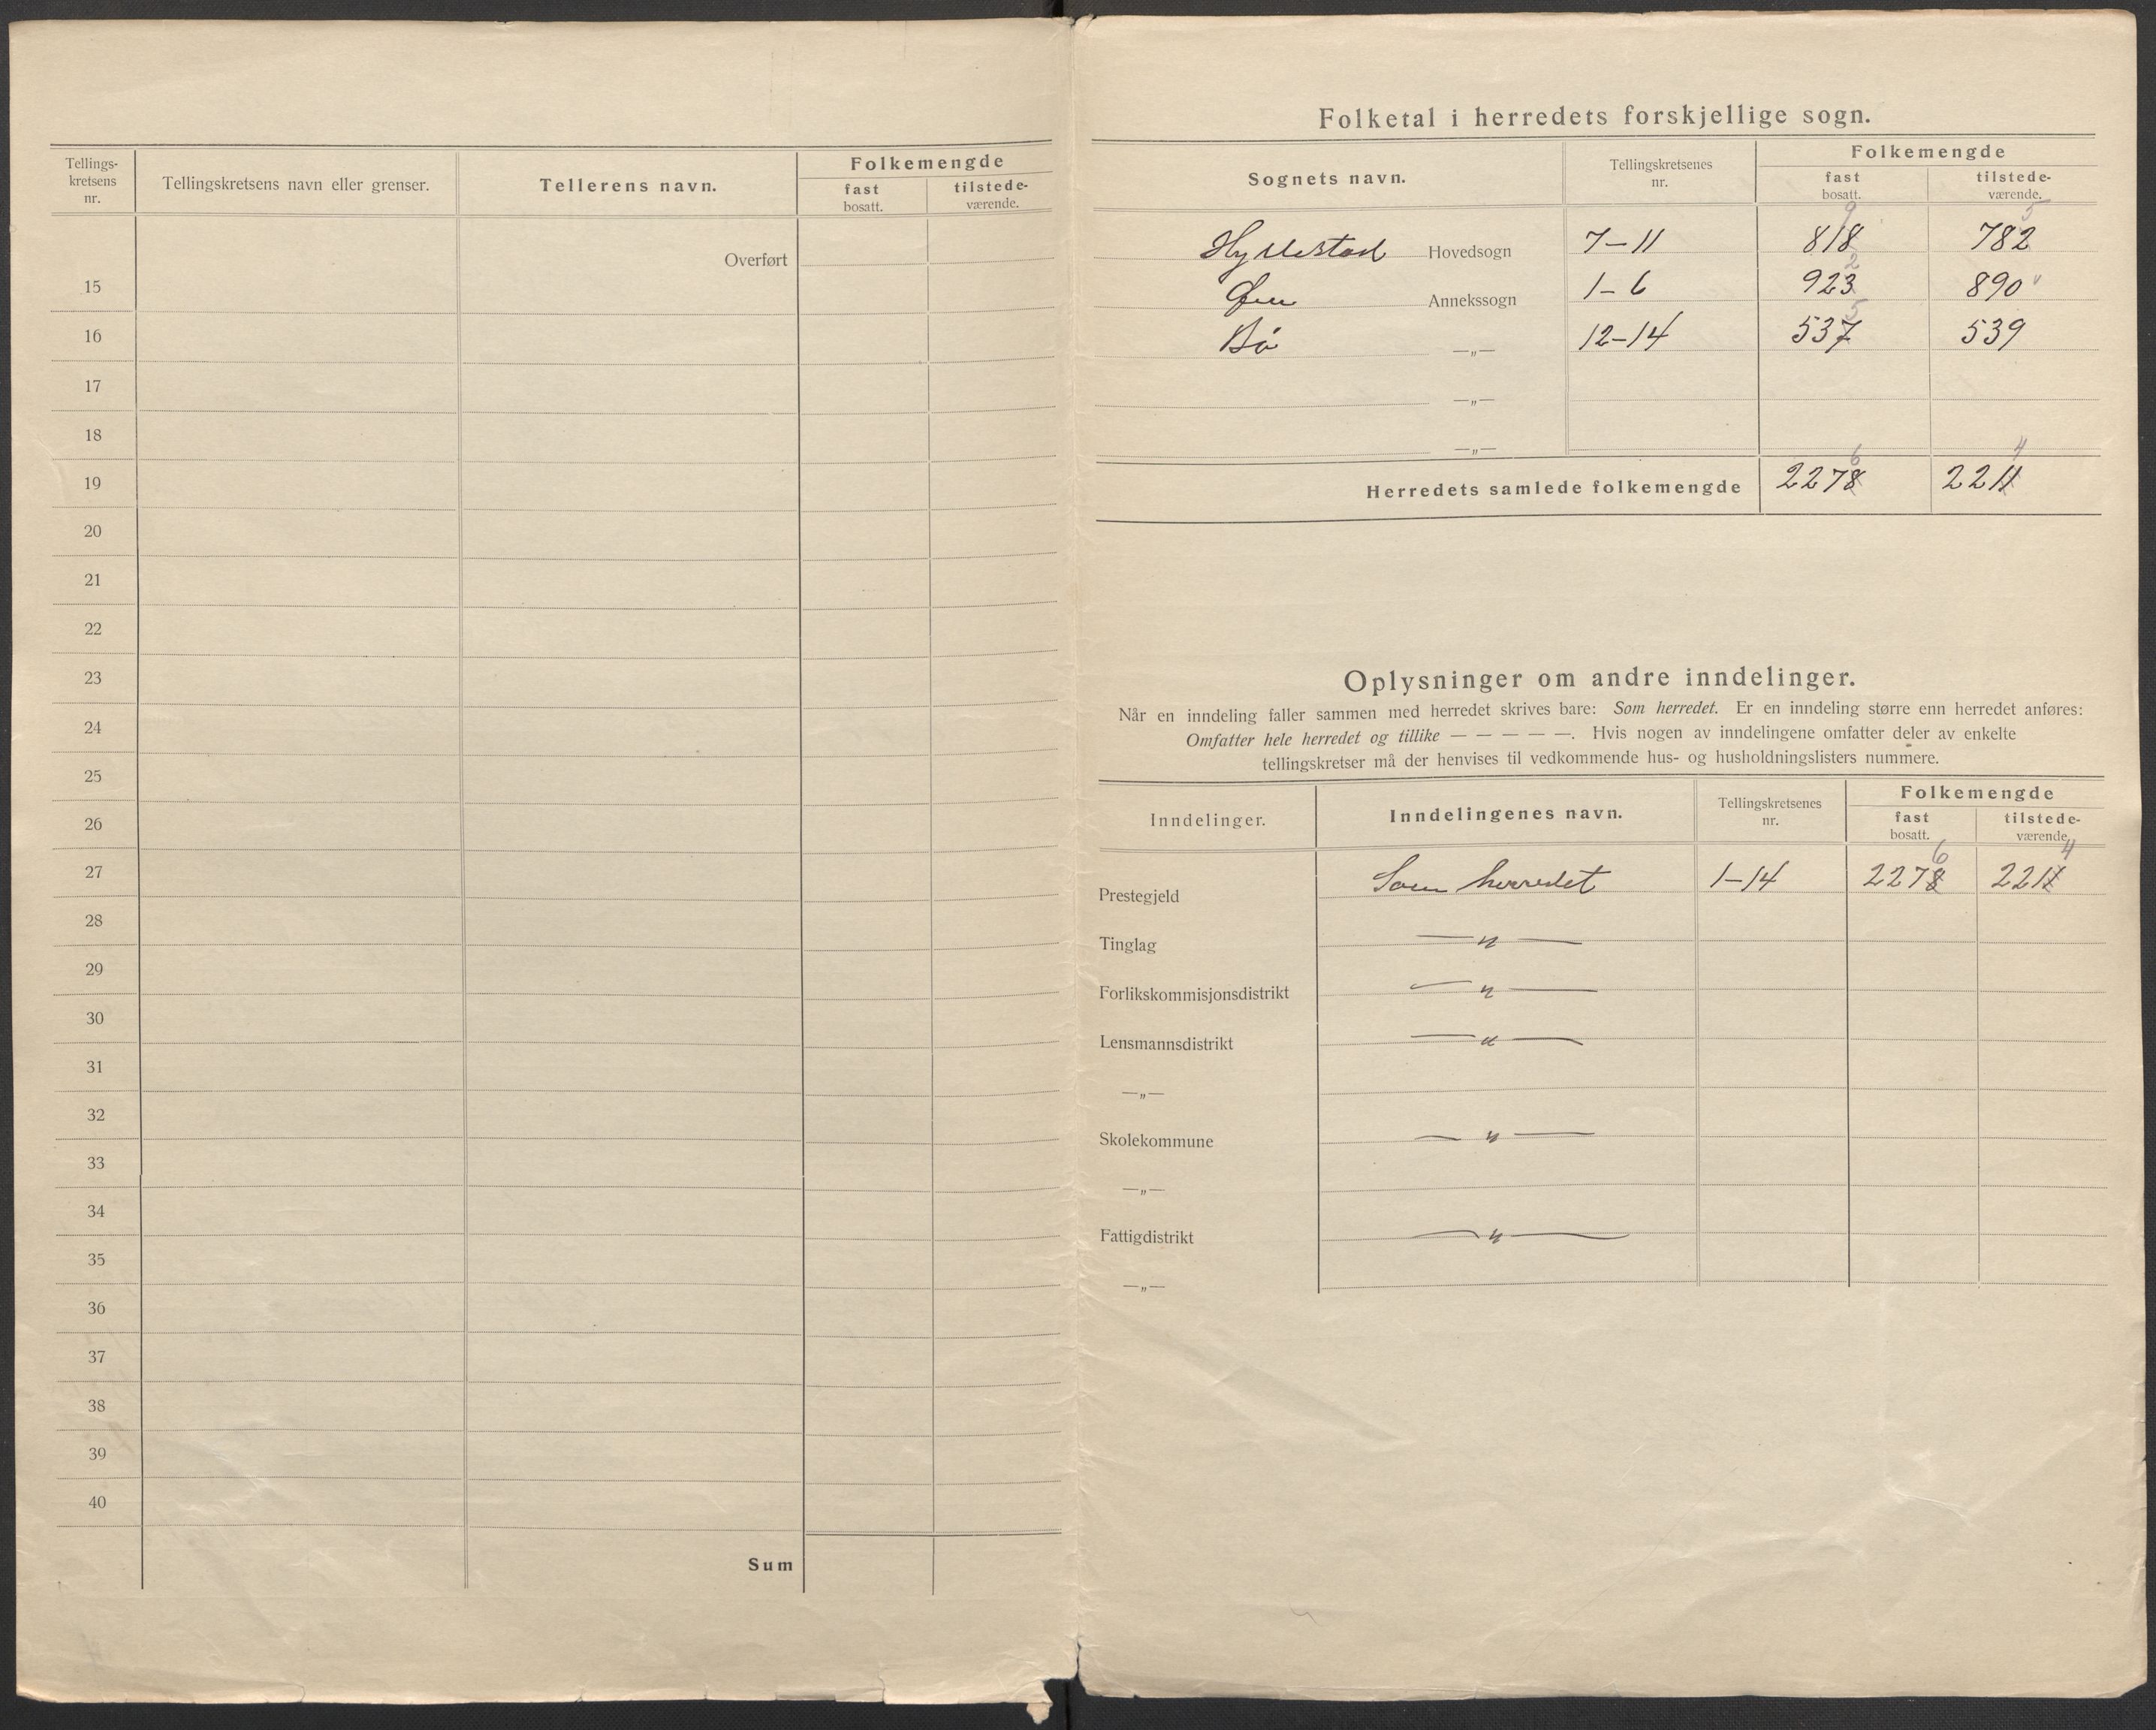 Tellings-
kretsens
nr.
Tellingskretsens navn eller grenser.
Tellerens navn.
Folkemengde
fast
bosatt.
tilstede-
værende.
Overført
15
16
17
18
19
20
21
22
23
24
25
26
27
28
29
30
31
32
33
34
35
36
37
38
39
40
Sum
Folketal i herredets forskjellige sogn.
Sognets navn.
Tellingskretsenes
nr.
Folkemengde
fast
bosatt.
tilstede-
værende.
9 5
Hyllestad Hovedsogn 7-11 818 782
2
Annekssogn 1-6 923 890
5
Bø —„— 12-14 537 539
—„—
—„—
6 4
Herredets samlede folkemengde 2278 2211
Oplysninger om andre inndelinger.
Når en inndeling faller sammen med herredet skrives bare: Som herredet. Er en inndeling større enn herredet anføres:
Omfatter hele herredet og tillike — — — — —. Hvis nogen av inndelingene omfatter deler av enkelte
tellingskretser må der henvises til vedkommende hus- og husholdningslisters nummere.
Inndelinger.
Inndelingenes navn.
Tellingskretsenes
nr.
Folkemengde
fast
bosatt.
tilstede-
værende.
6 4
Prestegjeld Som herredet 1-14 2278 2211
Tinglag —„—
Forlikskommisjonsdistrikt —„—
Lensmannsdistrikt —„—
—„—
Skolekommune —„—
—„—
Fattigdistrikt —„—
—„—